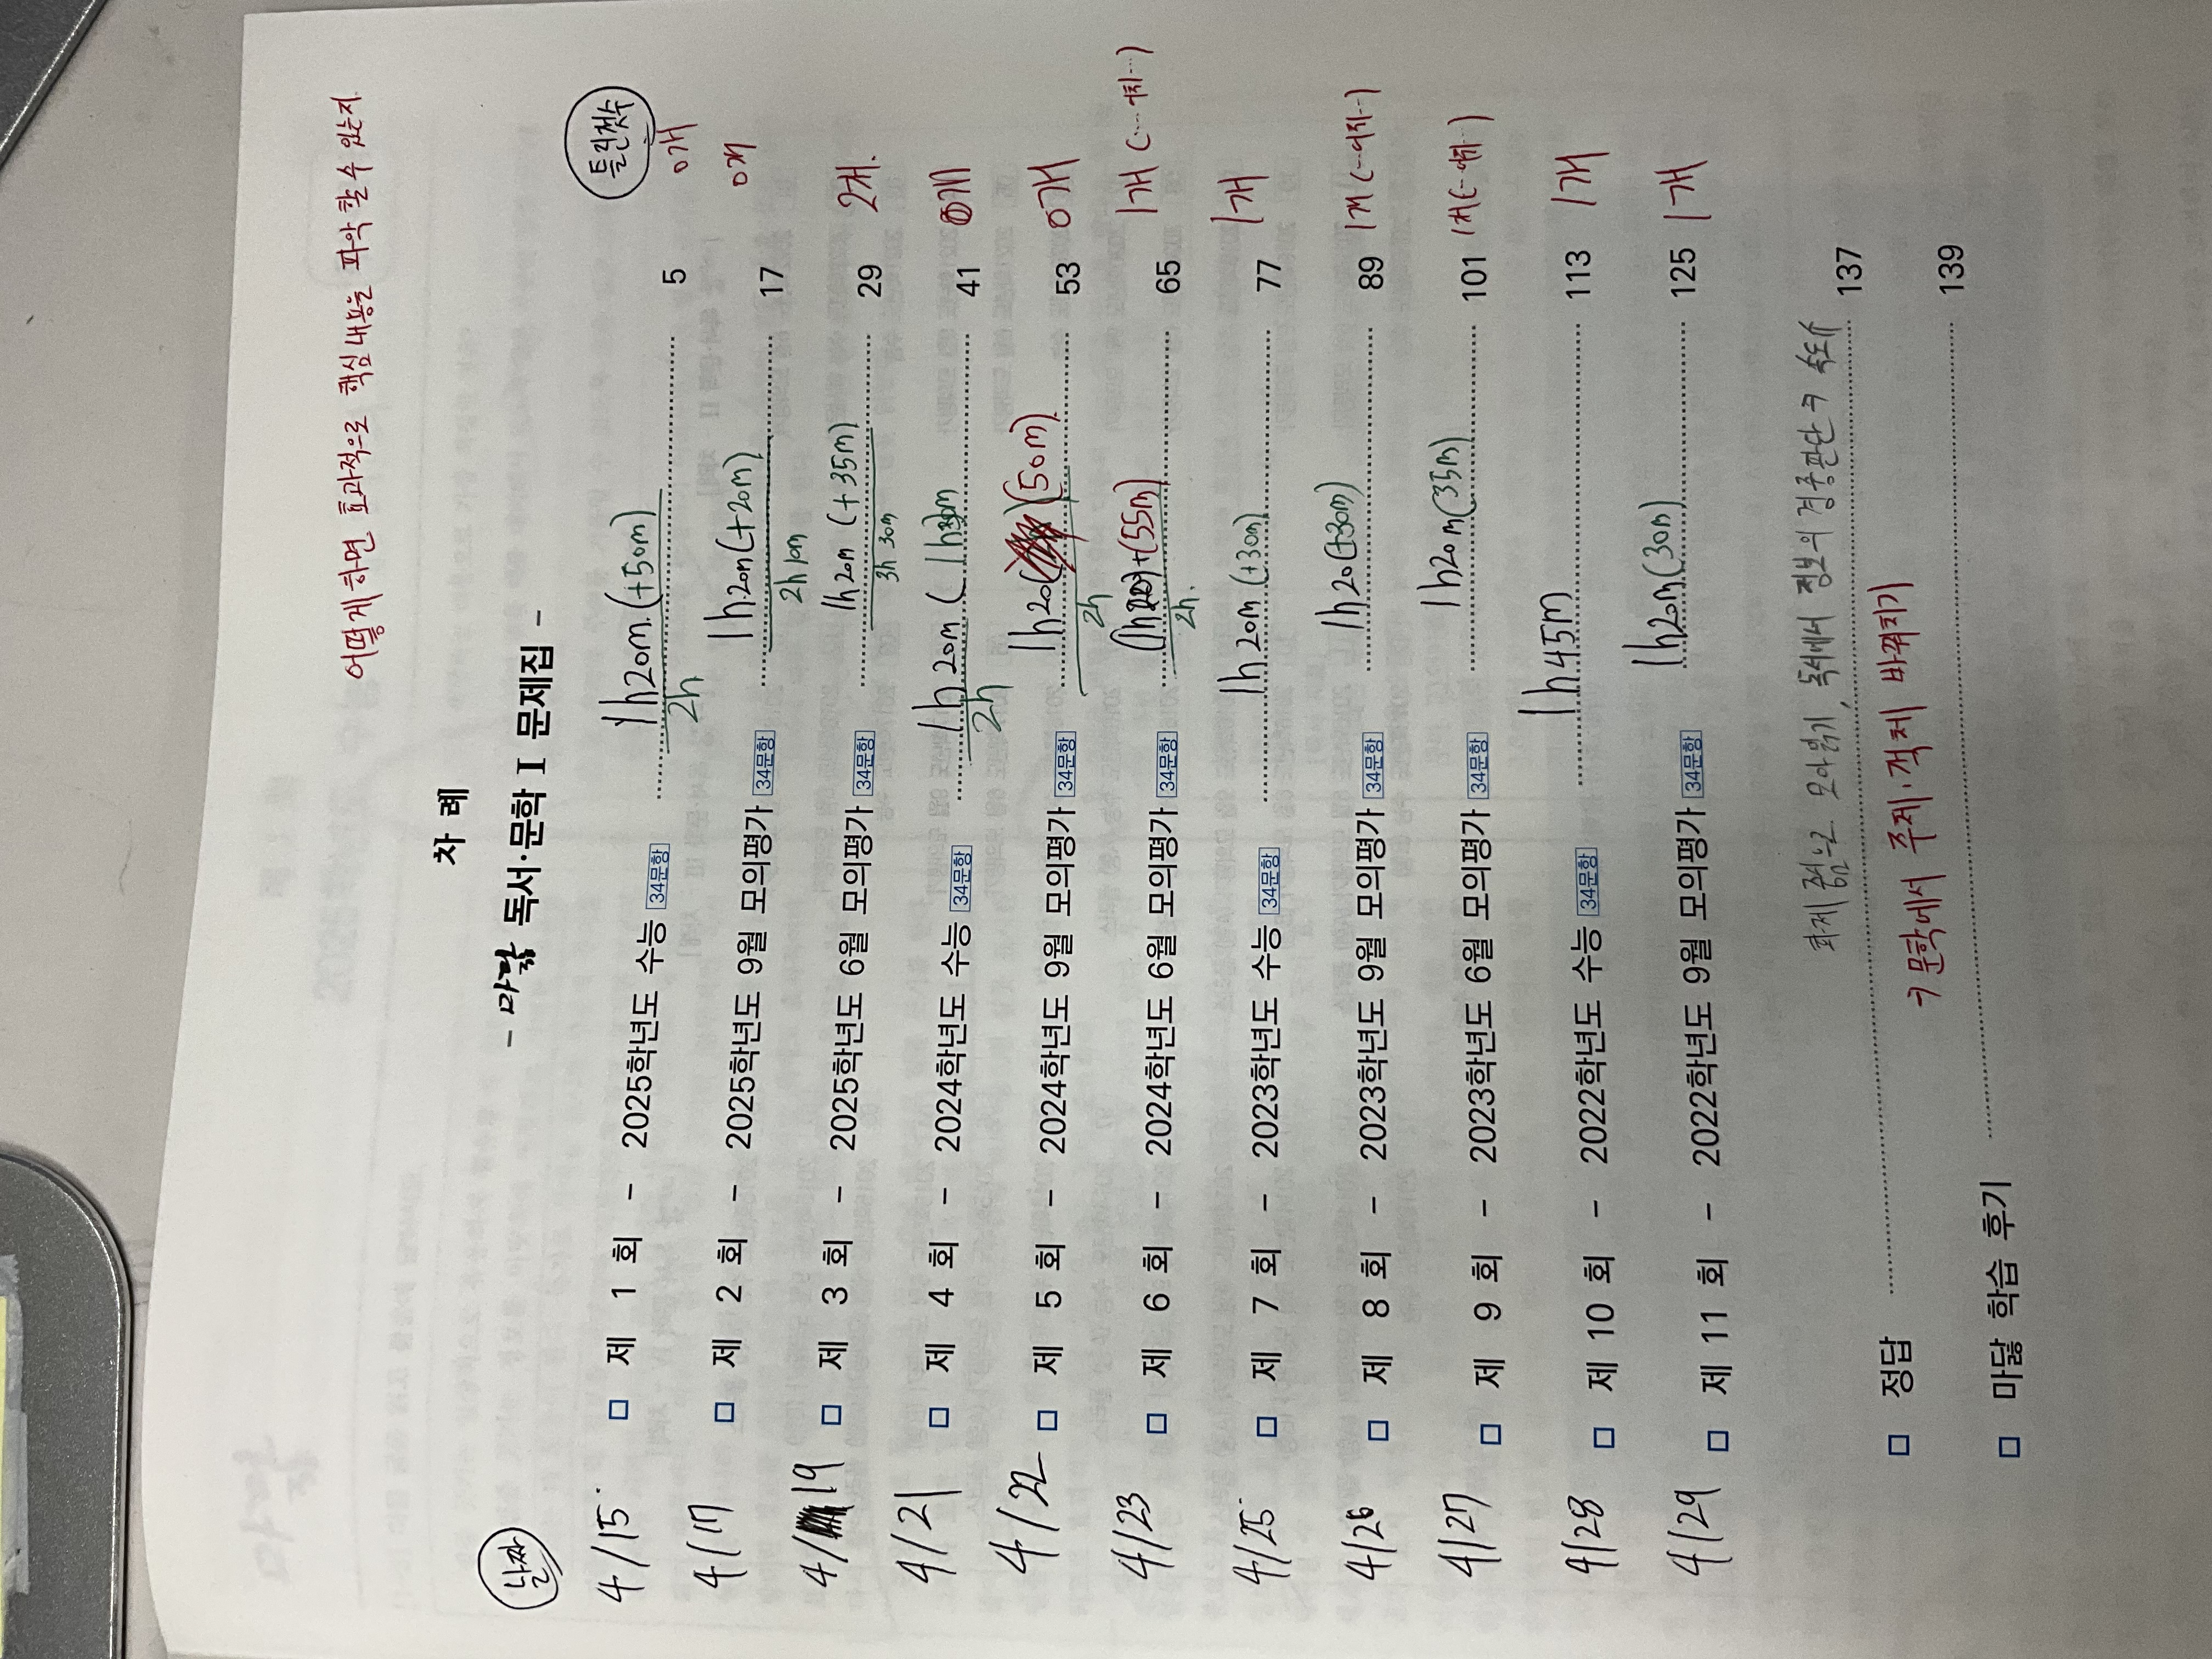 어떻게 하면 효과적으로 핵심 내용을 파악할 수 있는지
차 례
- 마닳 독서·문학 I 문제집 -
날짜 틀린갯수
4/15 □ 제 1 회 - 2025학년도 수능 34문항 1h20m (+50m) 5 0개
2h
4/17 □ 제 2 회 - 2025학년도 9월 모의평가 34문항 1h20m (+20m) 17 0개
2h 10m
4/19 □ 제 3 회 - 2025학년도 6월 모의평가 34문항 1h 20m (+35m) 29 2개.
3h 30m
4/21 □ 제 4 회 - 2024학년도 수능 34문항 1h 20m ( 41
2h
4/22 □ 제 5 회 - 2024학년도 9월 모의평가 34문항 1h20 (50m) 53 0개
2h
4/23 □ 제 6 회 - 2024학년도 6월 모의평가 34문항 +(55m) 65 1개
2h.
4/25 □ 제 7 회 - 2023학년도 수능 34문항 1h 20m (+30m) 77 1개
4/26 □ 제 8 회 - 2023학년도 9월 모의평가 34문항 1h 20 (+30m) 89 1개
4/27 □ 제 9 회 - 2023학년도 6월 모의평가 34문항 1h20m (35m) 101 1개
4/28 □ 제 10 회 - 2022학년도 수능 34문항 1h 45m 113 1개
4/29 □ 제 11 회 - 2022학년도 9월 모의평가 34문항 1h20m (30m) 125 1개
화제 중심으로 모아읽기, 독서에서 정보의 경중판단 ㅋ 속도↑
□ 정답 137
ㅋ 문학에서 주제·객체 바꿔치기
□ 마닳 학습 후기 139